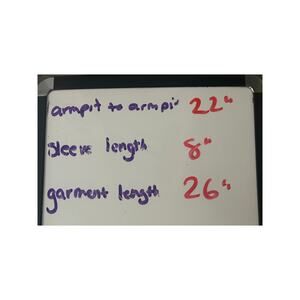 armpit to armpit 22"
sleeve length 8"
garment length 26"